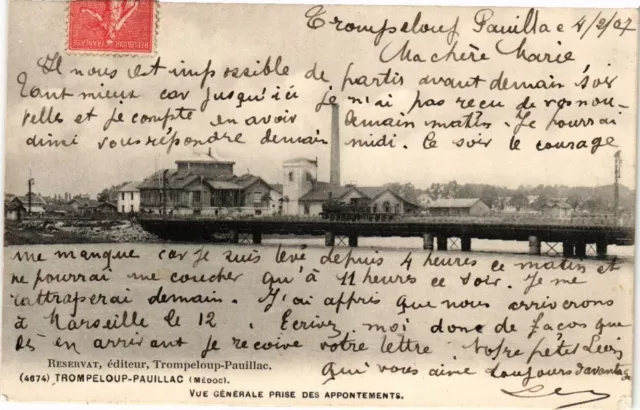 Trompeloup Pauillac 4/2/07
Ma chère Marie
Il nous est impossible de partir avant demain soir
Tant mieux car jusqu'ici je n'ai pas recu de vos nou-
velles et je compte en avoir demain matin. Je pourrai
ainsi vous répondre demain midi. Ce soir le courage
me manque car je suis levé depuis 4 heures ce matin et
ne pourrai me coucher qu'à 11 heures ce soir. Je me
rattraperai demain. J'ai appris que nous arriverons
à Marseille le 12. Ecrivez moi donc de façon que
dès en arrivant je recoive votre lettre. Votre petit Léon
qui vous aime toujours davantage
Léon
RESERVAT, éditeur, Trompeloup-Pauillac.
(4674) TROMPELOUP-PAUILLAC (MÉDOC).
VUE GÉNÉRALE PRISE DES APPONTEMENTS.